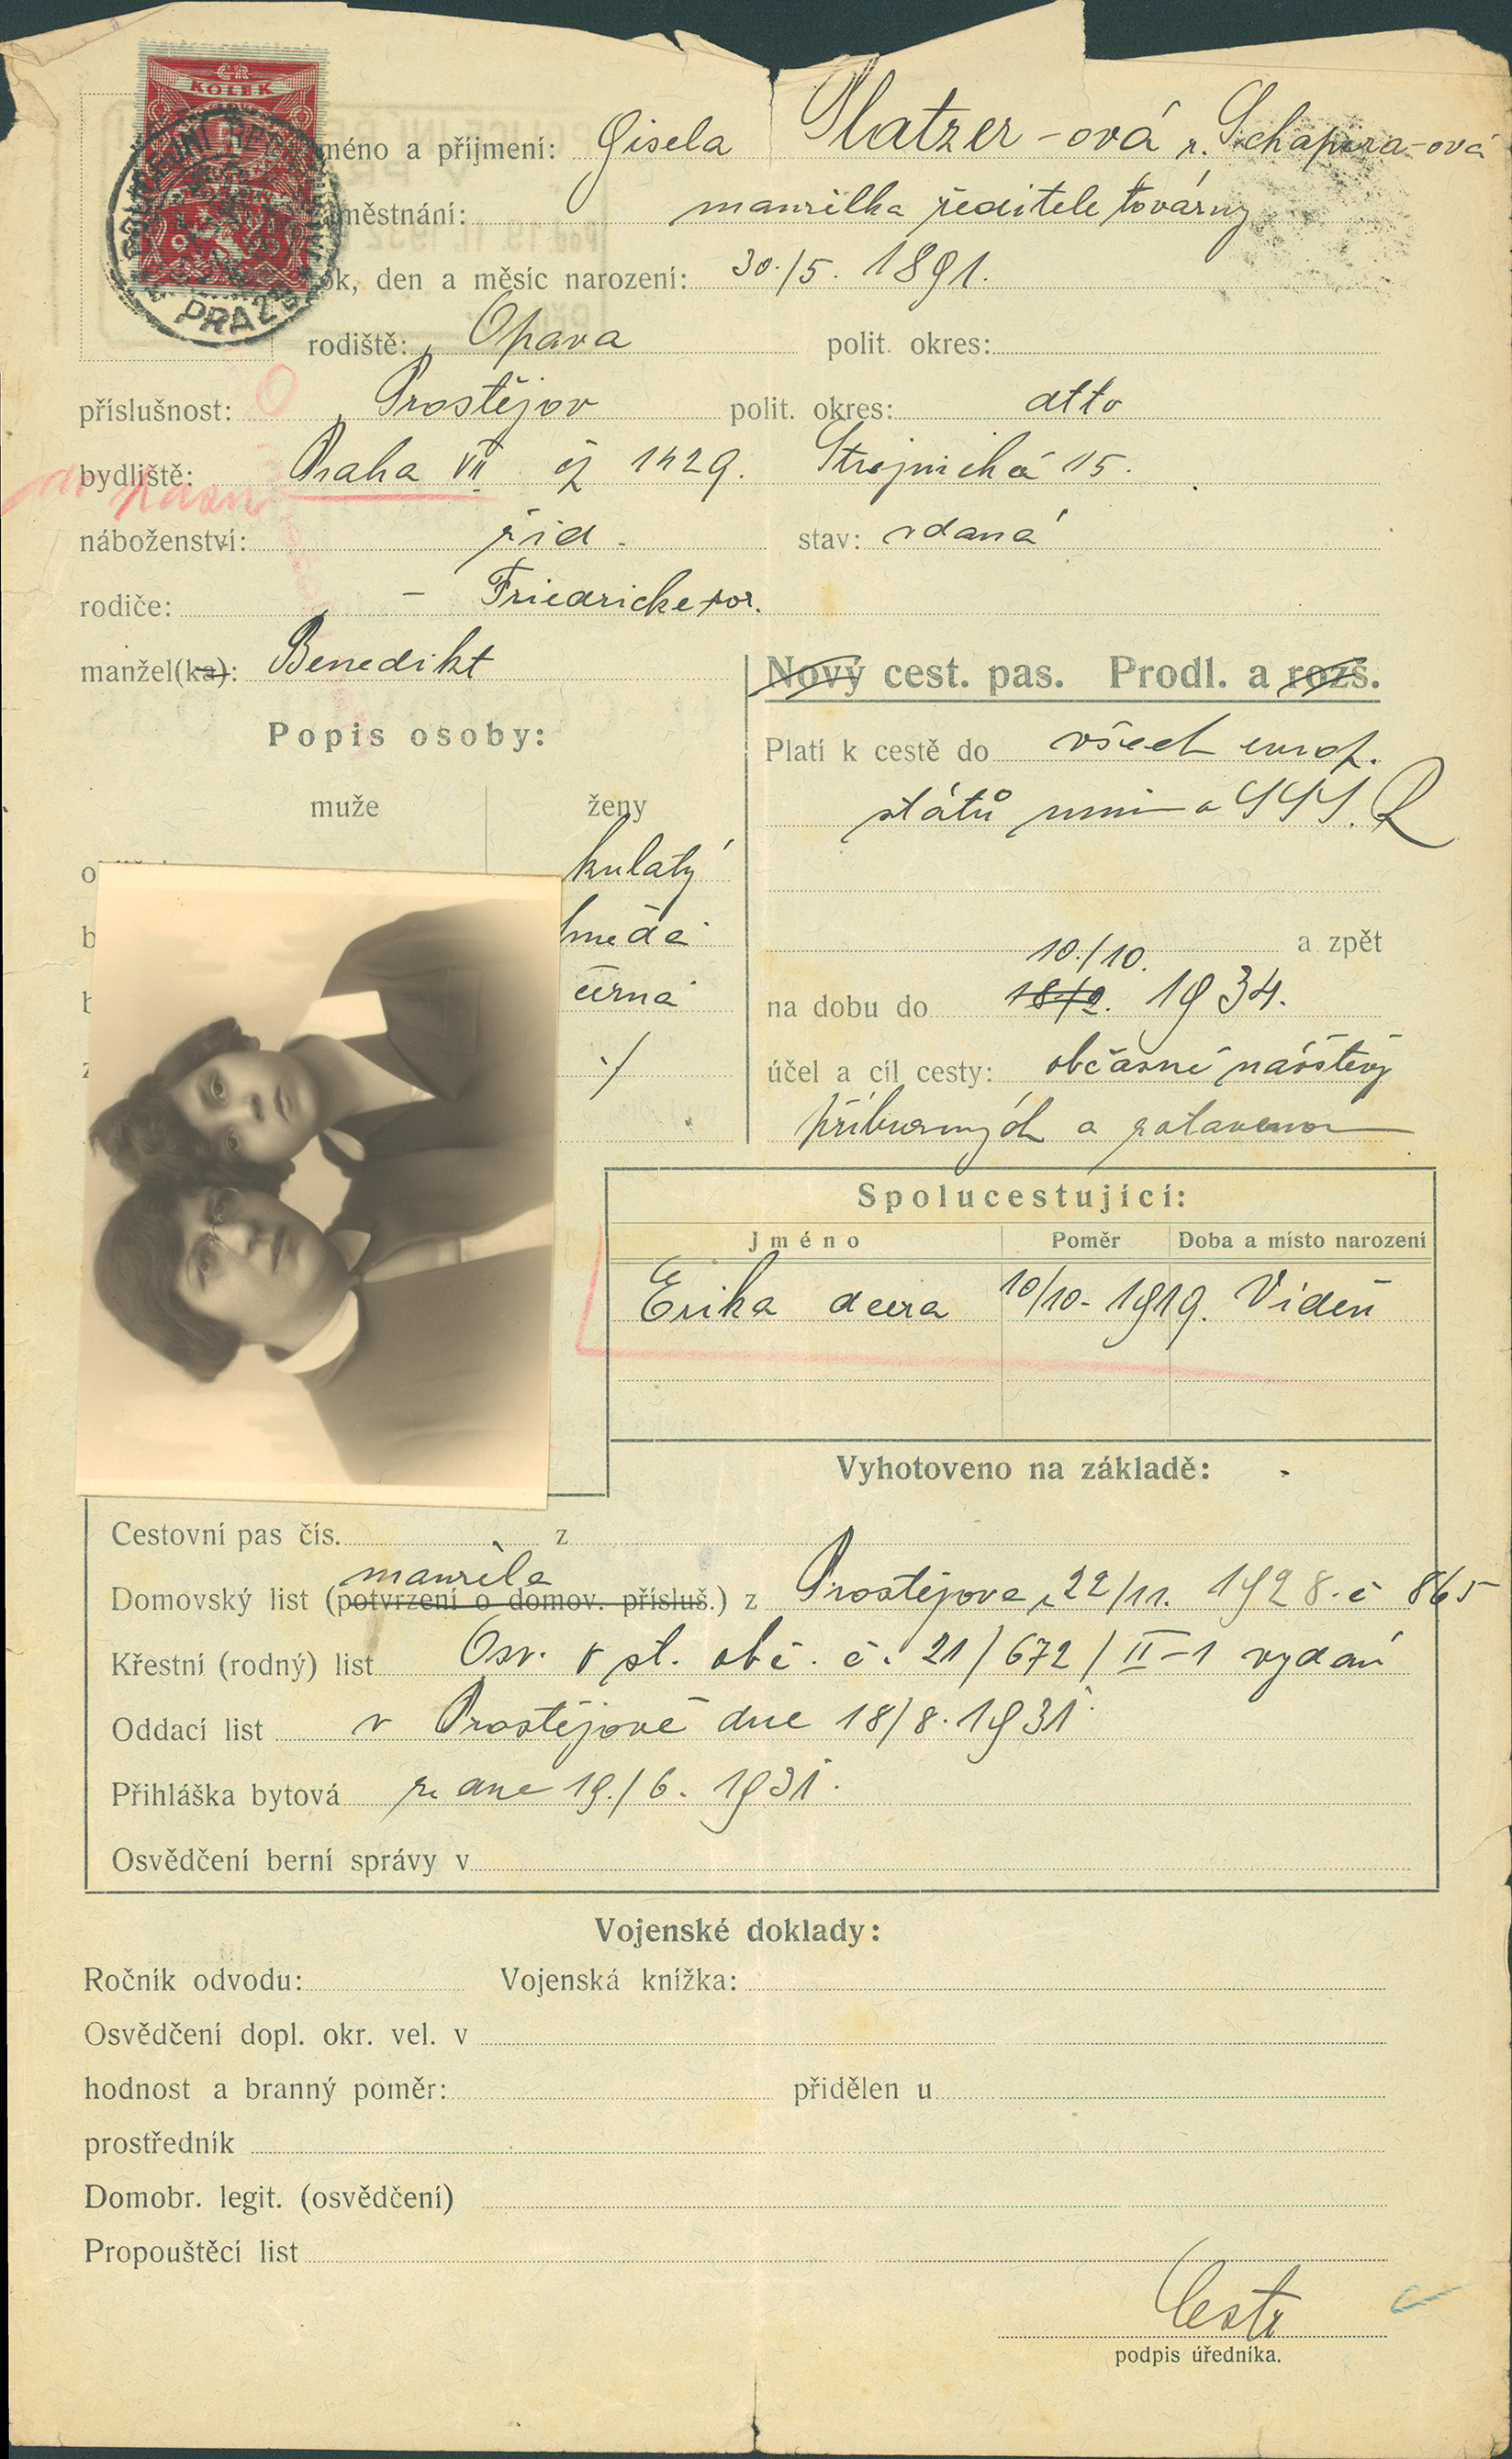 ČR
KOLEK
PRAZE
méno a příjmení: Gisela Platzer-ová r. Schapira-ová
městnání: manželka ředitele továrny
ok, den a měsíc narození: 30./5. 1891.
rodiště: Opava polit. okres:
příslušnost: Prostějov polit. okres: dtto
bydliště: Praha VII čj 1429. Strojnická 15.
náboženství: žid. stav: vdaná
rodiče: – Friedricke roz.
manžel(ka): Benedikt
Nový cest. pas. Prodl. a rozš.
Popis osoby:
muže ženy
Platí k cestě do všech evrop.
států mimo SSSR
kulatý
hnědé
a zpět
černá
10./10.
na dobu do 18/2. 1934.
./
účel a cíl cesty: občasné návštěvy
příbuzných a zotavenou
Spolucestující:
Jméno Poměr Doba a místo narození
Erika dcera 10/10. 1919. Vídeň
Vyhotoveno na základě:
Cestovní pas čís. z
manžela
Domovský list (potvrzení o domov. přísluš.) z Prostějova z 22/11. 1928. č 865
Křestní (rodný) list Osv. o st. obč. č. 21/672/II-1 vydané
Oddací list v Prostějově dne 18/8. 1931.
Přihláška bytová ze dne 19./6. 1931.
Osvědčení berní správy v
Vojenské doklady:
Ročník odvodu: Vojenská knížka:
Osvědčení dopl. okr. vel. v
hodnost a branný poměr: přidělen u
prostředník
Domobr. legit. (osvědčení)
Propouštěcí list
podpis úředníka.